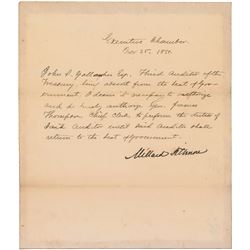 Executive Chamber.
Nov 25, 185
John S. Gallaher Esq. Third Auditor of the
Treasury, being absent from the seat of Gov-
ernment, I deem it necessary to authorize
and do hereby authorize Geo. Francis
Thompson Chief Clerk, to perform the duties of
said Auditor until said Auditor shall
return to the seat of government.
Millard Fillmore